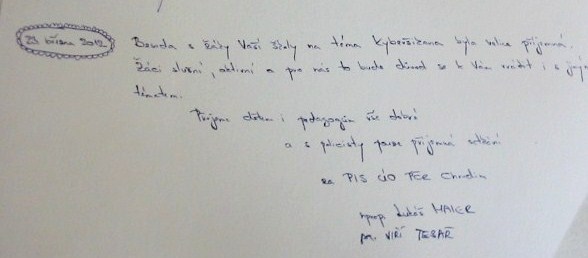 23. března 2012
Beseda s žáky Vaší školy na téma Kyberšikana byla velice příjemná.
Žáci slušní, aktivní a pro nás to bude důvod se k Vám vrátit i s jiným
tématem.
Přejeme dětem i pedagogům vše dobré
a s policisty pouze příjemná setkání
za PIS ÚO PČR Chrudim
nprap. Lukáš MAIER
por. JIŘÍ TESAŘ